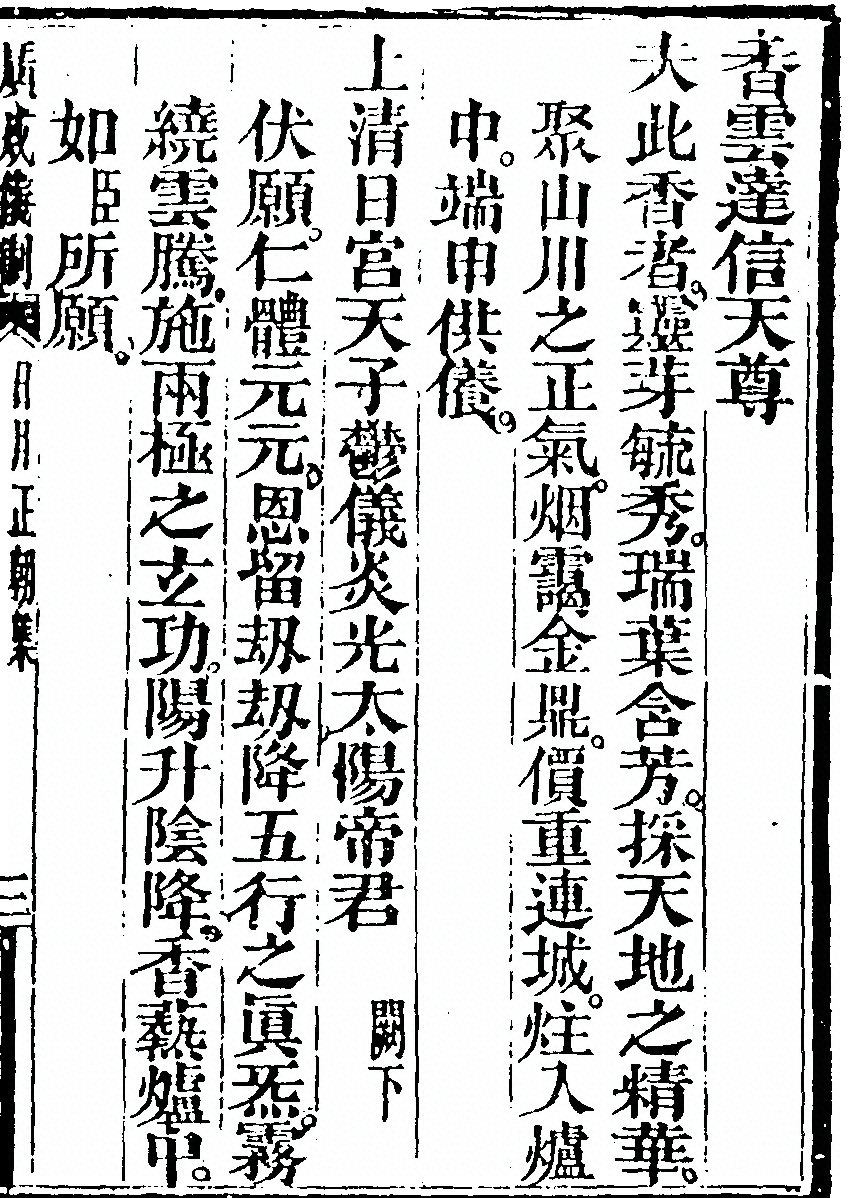 香雲達信天尊
夫此香者。靈芽毓秀。瑞葉含芳。採天地之精華。
聚山川之正氣。烟靄金鼎。價重連城。炷入爐
中。端申供儀。
上清日宮天子鬱儀炎光太陽帝君　闕下
伏願。仁體元元。恩留刼刼降五行之眞炁。霧
繞雲騰。施兩極之玄功。陽升陰降。香爇爐中。
如臣所願。
廣成儀制　日月正朝集　三